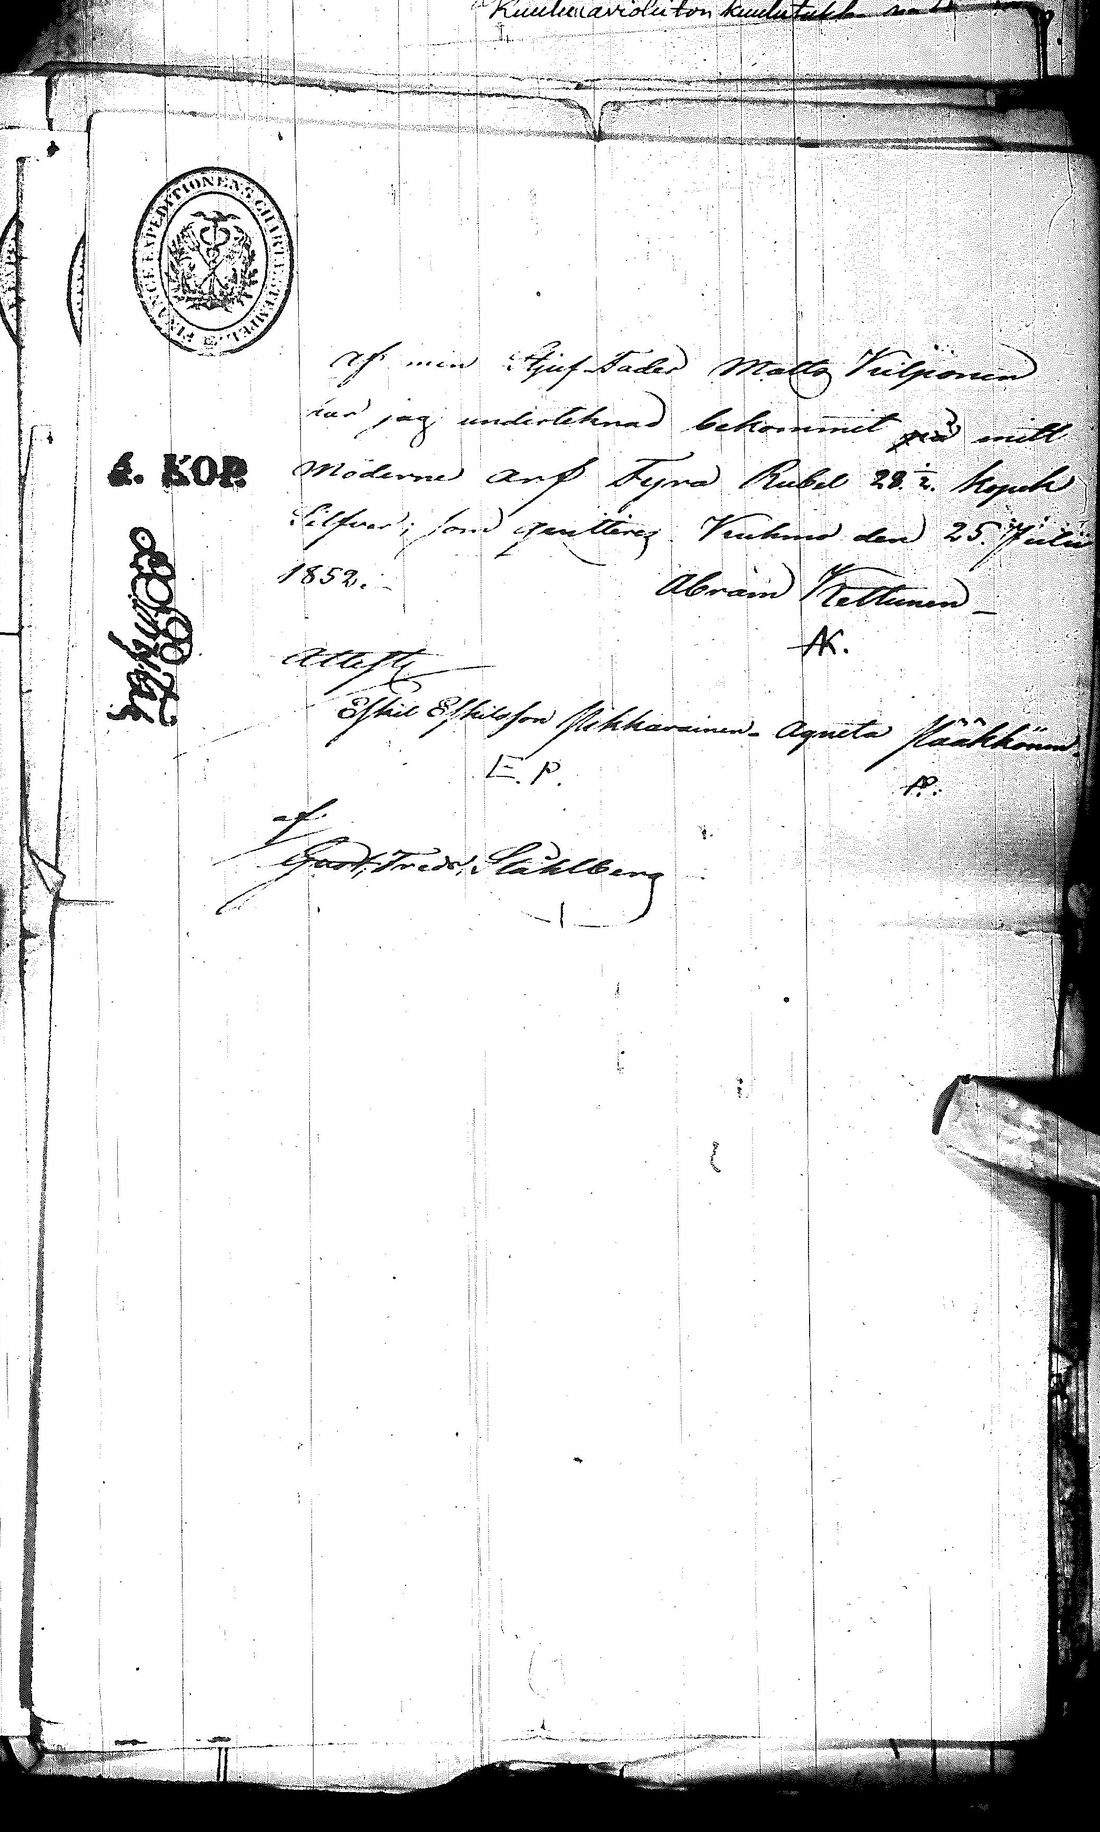 FINANCE EXPEDITIONENS CHARTÆ STEMPEL
4. KOP.
Af min Stjuf-Fader Matts Vilponen
har jag underteknad bekommit på mitt
Möderne arf Fyra Rubel 28.½. kopek
Silfver; som qvitteras Kuhmo den 25. Julii
1852.
Abram Kettunen
AK.
Attest
Eskil Eskilsson Pikkarainen - Agneta Hääkkönen.
E. P.
af
Gust. Fredr. Ståhlberg